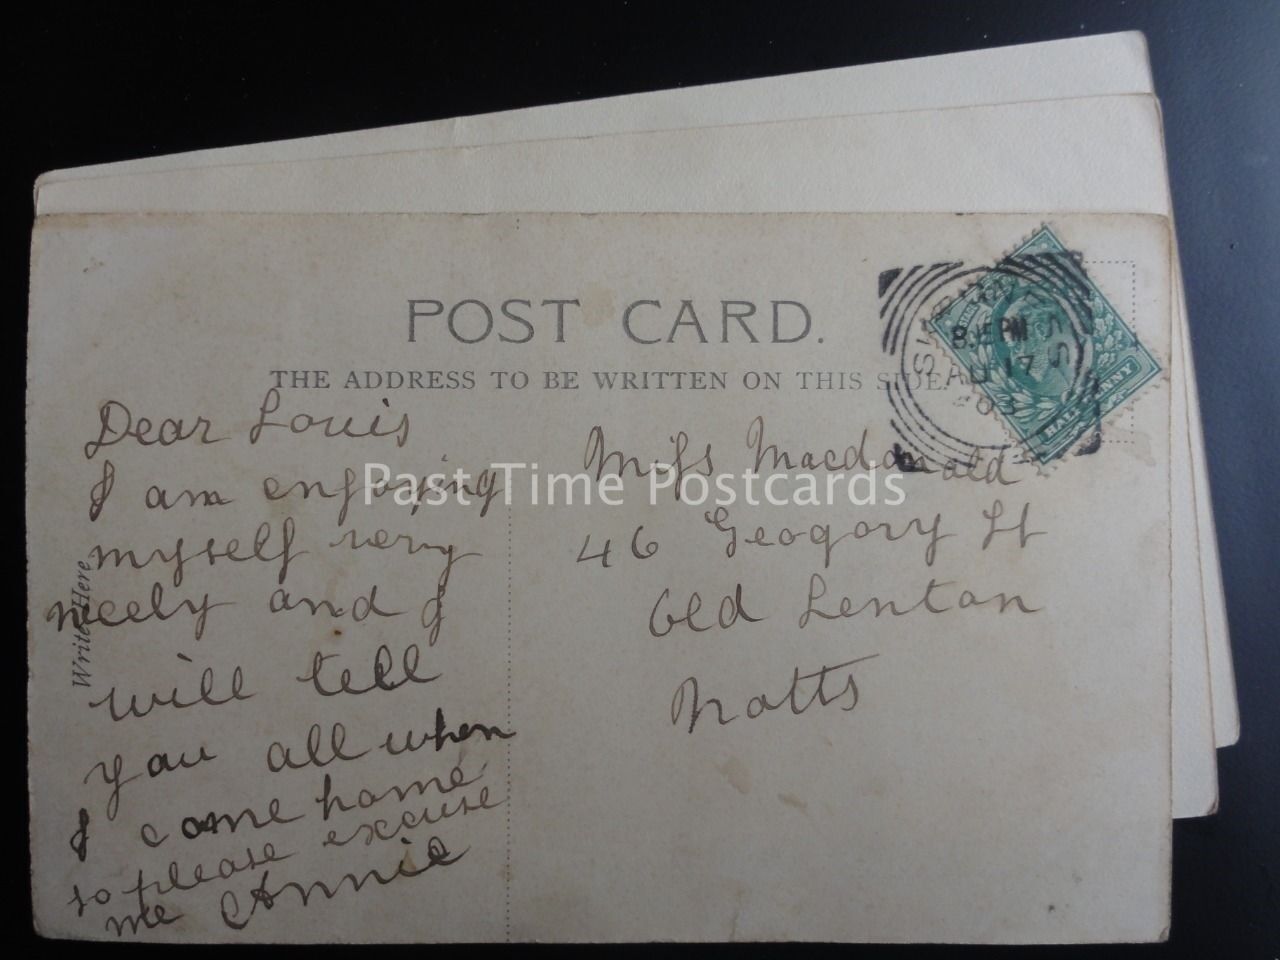 POST CARD.
THE ADDRESS TO BE WRITTEN ON THIS SIDE.
Write Here
Dear Louis
I am enjoying
myself very
nicely and I
will tell
you all when
I come home
so please excuse
me Annie
Miss Macdonald
46 Geogory St
Old Lenton
Notts
8.15 PM
AU 17
03
HALF PENNY
Past Time Postcards